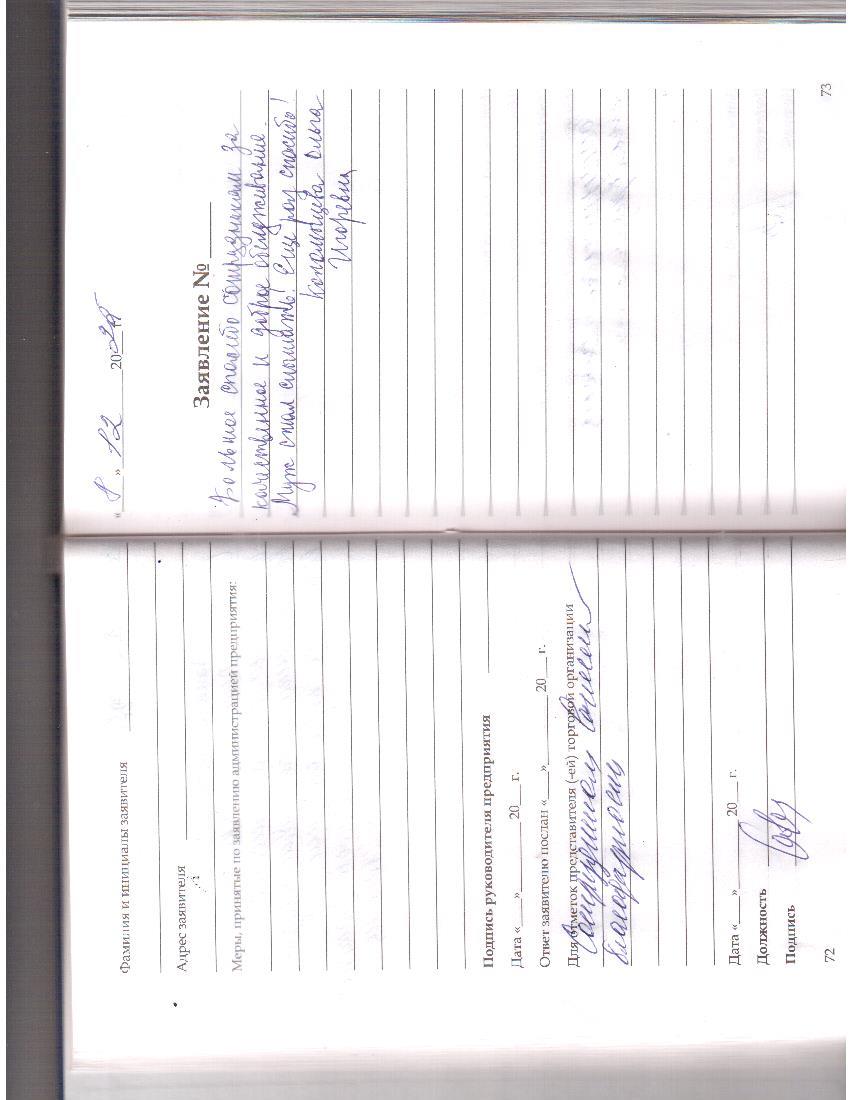 Фамилия и инициалы заявителя
Адрес заявителя
Меры, принятые по заявлению администрацией предприятия:
Подпись руководителя предприятия
Дата «___» ________ 20___ г.
Ответ заявителю послан «___» ________ 20___ г.
Для отметок представителя (-ей) торговой организации
Сотрудникам вынесены
благодарности
Дата «___» ________ 20___ г.
Должность
Подпись
72
«8» 12 20
Заявление № ____
Большое спасибо сотрудникам за
качественное и доброе обслуживание.
Муж стал слышать! Еще раз спасибо!
Коломыцева Ольга
Игоревна
73